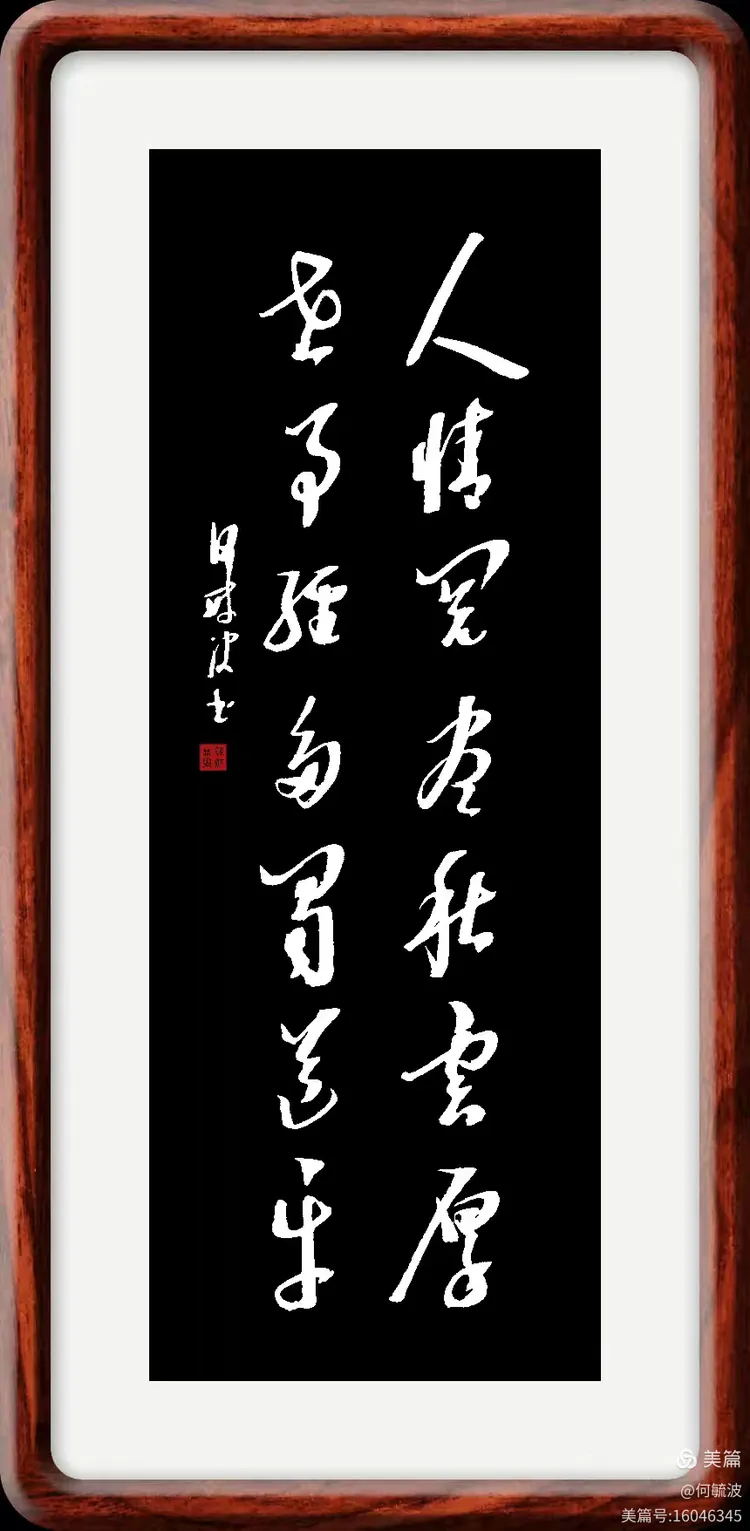 人情阅尽秋雲厚
世事經多蜀道平
何毓波书
美篇
@何毓波
美篇号:16046345